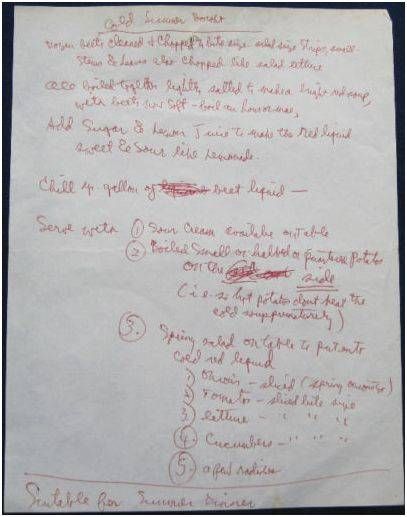 Cold Summer Borsht
dozen beets cleaned & chopped in bite size salad size strips, small
stems & leaves also chopped like salad lettuce
all boiled together lightly salted to make a bright red soup,
beets now soft - boil an hour or more,
Add Sugar & Lemon Juice to make the red liquid
sweet & sour like Lemonade.
Chill gallon of beet liquid —
Serve with ① Sour Cream available on table
② Boiled small or halved or quartered potato
on the side
(i.e. so hot potatoes don't heat the
cold soup prematurely)
③ Spring salad on table to put into
cold red liquid
1) Onion - sliced (spring onions)
2) Tomato - sliced bite size
3) lettuce - " " "
④ Cucumbers - " " "
⑤ a few radishes
Suitable for Summer Dinner